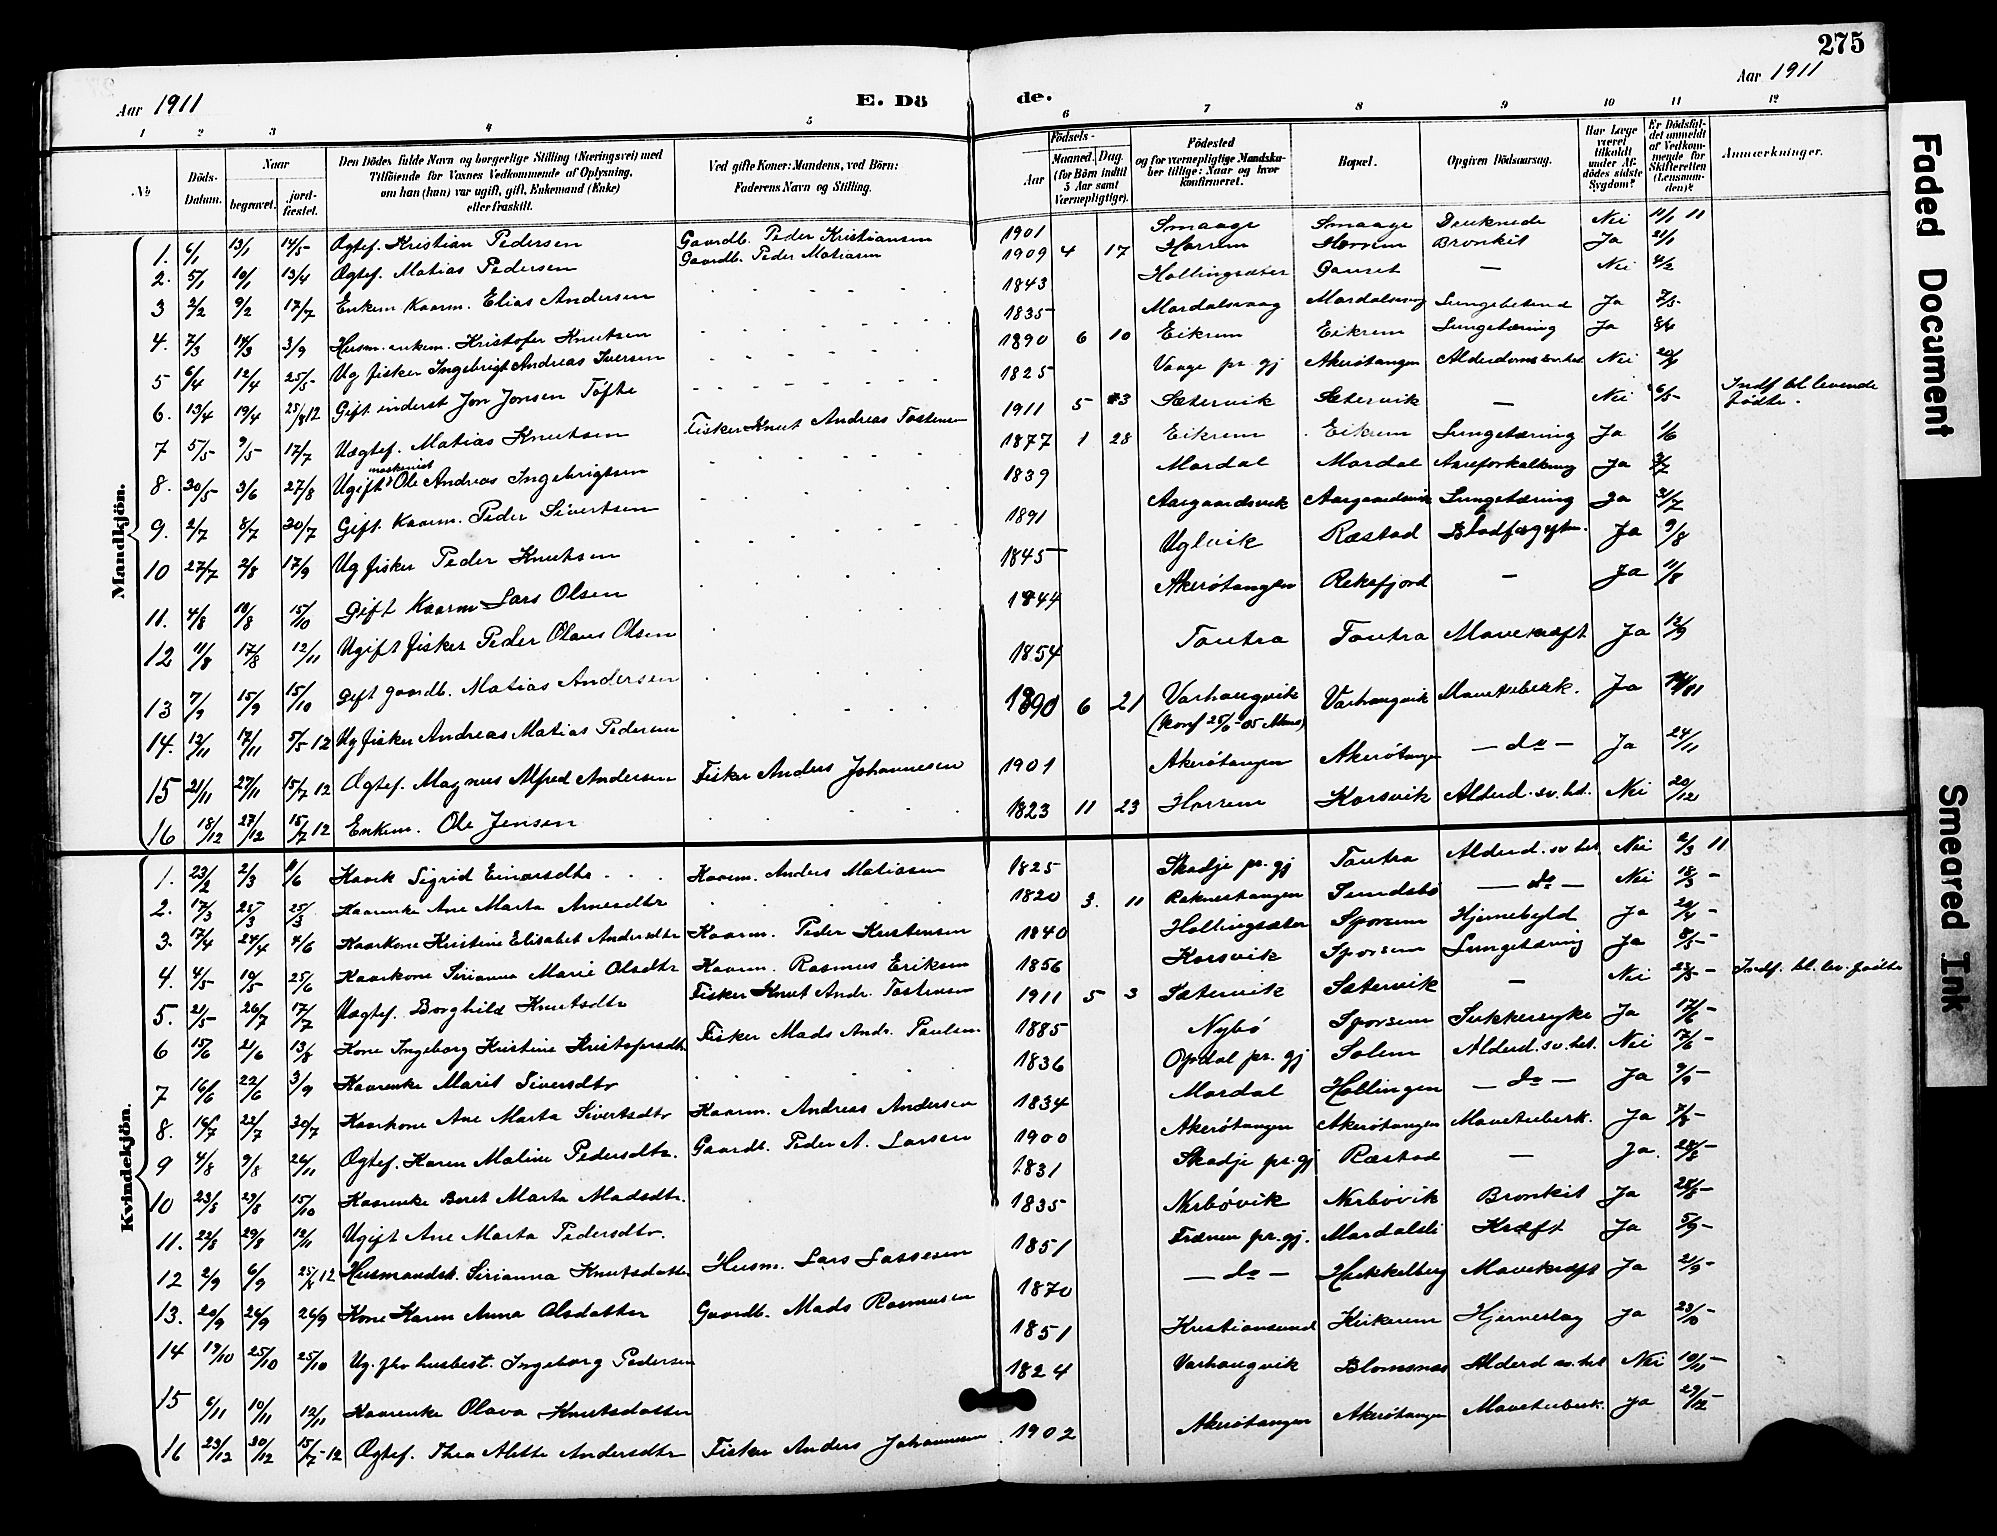 275
Aar 1911
E. Dö
de.
Aar 1911
1 2 3 4 5 6 7 8 9 10 11 12
№
Döds-Datum.
Naar
begravet.
jord-fæstet.
Den Dödes fulde Navn og borgerlige Stilling (Næringsvei) med
Tilföiende for Voxnes Vedkommende af Oplysning,
om han (hun) var ugift, gift, Enkemand (Enke)
eller fraskilt.
Ved gifte Koner: Mandens, ved Börn:
Faderens Navn og Stilling.
Födsels-
Aar
Maaned. Dag.
(for Börn indtil
5 Aar samt
Værnepligtige).
Födested
og for værnepligtige Mandska-
ber tillige: Naar og hvor
konfirmeret.
Bopæl.
Opgiven Dödsaarsag.
Har Læge
været
tilkaldt
under Af-
dödes sidste
Sygdom?
Er Dödsfal-
det anmeldt
af Vedkom-
mende for
Skifteretten
(Lensman-
den)?
Anmærkninger.
Mandkjön.
1. 6/1 13/1 14/5 Ægtef. Kristian Pedersen Gaardb. Peder Kristiansen 1901 Smaage Smaage Druknede Nei 11/1 11
2. 5/1 10/1 13/4 Ægtef. Matias Pedersen Gaardb. Peder Matiasen 1909 4 17 Harrem Harrem Bronkit Ja 21/1
3 2/2 9/2 17/7 Enkem Kaarm. Elias Andersen 1843 Hollingsæter Gauset — Nei 4/2
4. 7/3 14/3 3/9 Husm. enkem. Kristofer Knutsen 1835 Mardalsvaag Mardalsvaag Lungebetend Ja 7/3
5 6/4 12/4 25/5 Ug fisker Ingebrigt Andreas Iversen 1890 6 10 Eikrem Eikrem Lungetæring Ja 8/4
6. 13/4 19/4 25/8 12 Gift inderst Jon Jonsen Tøfte 1825 Vaage pr. gj Akerøtangen Alderdomssvakhet Nei 20/4
7 5/5 9/5 17/7 Uægtef. Matias Knutsen Fisker Knut Andreas Tostensen 1911 5 3 Sætervik Sætervik — Nei 6/5 Indf bl. levende fødte.
8. 30/5 3/6 27/8 Ugift maskinist Ole Andreas Ingebrigtsen 1877 1 28 Eikrem Eikrem Lungetæring Ja 1/6
9. 2/7 8/7 30/7 Gift. Kaarm. Peder Sivertsen 1839 Mardal Mardal Aareforkalkning Ja 3/7
10 27/7 2/8 17/9 Ug fisker Peder Knutsen 1891 Aargaardsvik Aargaardsvik Lungetæring Ja 31/7
11. 4/8 10/8 15/10 Gift Kaarm Lars Olsen 1845 Uglvik Ræstad Blodforgiftn. Ja 9/8
12 11/8 17/8 12/11 Ugift fisker Peder Olaus Olsen 1844 Akerøtangen Rekefjord — Ja 11/8
13 7/9 15/9 15/10 Gift gaardb. Matias Andersen 1854 Tautra Tautra Mavekræft Ja 12/9
14. 12/11 17/11 5/5 12 Ug fisker Andreas Matias Pedersen 1890 6 21 Varhaugvik Varhaugvik Mavetuberk. Ja
(Konf 25/6-05
15 21/11 27/11 15/7 12 Ægtef. Magnus Alfred Andersen Fisker Anders Johannesen 1901 Akerøtangen Akerøtangen — do — Ja 24/11
16 18/12 27/12 15/7 12 Enkem. Ole Jensen 1823 11 23 Harrem Korsvik Alderd. sv. het. Nei 20/12
Kvindekjön.
1. 23/2 2/3 11/6 Kaark Sigrid Einarsdtr Kaarm. Anders Matiasen 1825 Skodje pr. gj Tautra Alderd. sv. het. Nei 2/3 11
2. 17/3 25/3 25/3 Kaarenke Ane Marta Arnesdtr 1820 3. 11 Raknestangen Sundsbø — do — Nei 18/3 -
3. 17/4 24/4 4/6 Kaarkone Kristine Elisabet Andersdtr Kaarm. Peder Kristensen 1840 Hollingsæter Sporsem Hjernebyld Ja 20/4 -
4. 4/5 10/5 25/6 Kaarkone Sirianna Marie Olsdtr Kaarm. Rasmus Eriksen 1856 Korsvik Sporsem Lungetæring Ja 8/5 -
5. 21/5 26/7 17/7 Uægtef. Borghild Knutsdtr Fisker Knut Andr. Tostensen 1911 5 3 Sætervik Sætervik — Nei 23/5 - Indf. bl. lev. fødte
6 15/6 21/6 13/8 Kone Ingeborg Kristine Kristofersdtr Fisker Mads Andr. Paulsen 1885 Nybø Sporsem Sukkersyke Ja 17/6 -
7 16/6 22/6 3/9 Kaarenke Marit Siversdtr 1836 Opdal pr. gj Solem Alderd. sv. het. Nei 17/6 -
8. 14/7 22/7 30/7 Kaarkone Ane Marta Sivertsdtr Kaarm. Andreas Andersen 1834 Mardal Hollingen — do — Ja
9 4/8 9/8 26/11 Ægtef. Karen Maline Pedersdtr. Gaardb. Peder A. Larsen 1900 Akerøtangen Akerøtangen Mavetuberk. Ja 7/8 -
10 23/8 29/8 15/10 Kaarenke Beret Marta Madsdtr. 1831 Skodje pr. gj Ræstad — Ja. 28/8 -
11. 22/8 29/8 12/11 Ugift Ane Marta Pedersdtr. 1835 Nerbøvik Nerbøvik Bronkit Ja 28/8 -
12 2/9 6/9 25/8 12 Husmandsk. Sirianna Knutsdatter Husm. Lars Lassesen 1851 Frænen pr. gj. Mardalsli Kræft Ja 5/9 -
13. 20/9 26/9 26/9 Kone Karen Anna Olsdatter Gaardb. Mads Rasmusen 1870 — do — Hukkelberg Mavekræft Ja 21/9 -
14 19/10 25/10 25/10 Ug. fhv husbest. Ingeborg Pedersen 1851 Kristiansund Kirkerem Hjerneslag Ja 23/10 -
15 6/11 10/11 12/11 Kaarenke Olava Knutsdatter 1824 Varhaugvik Blomsnes Alderd sv. het Nei 10/11 -
16 23/12 30/12 15/7-12 Ægtef. Thea Alette Andersdtr Fisker Anders Johannesen 1902 Akerøtangen Akerøtangen Mavetuberk. Ja 29/12 -
Faded Document
Smeared Ink